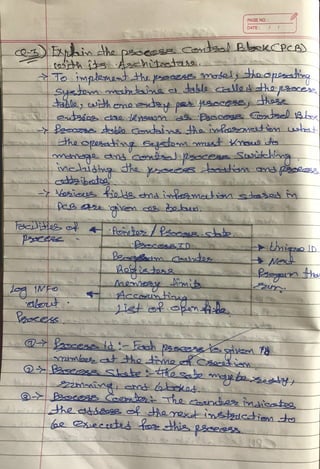 PAGE NO.
DATE: / /
Q-3) Explain the process Control Block (PCB)
with its Architecture.
→ To implement the process model, the operating
system maintains a table called the process
table, with one entry per process, these
entries are known as Process Control Block
→ Process table contains the information what
the operating system must know to
manage and control process switching
including the process location and process
attributes
→ Various fields and information stored in
PCB are given as below.
Facilities of
Process
Pointer / Process state
Process ID
Program counter
Registers
Memory limits
Accounting
List of open file
Unique ID
Next
Program
run.
Log INFO
about
Process
①→ Process id :- Each process is given ID
number at the time of creation
②→ Process State :- The state may be ready,
running, and blocked.
③→ Process Counter :- The counter indicates
the address of the next instruction to
be executed for this process